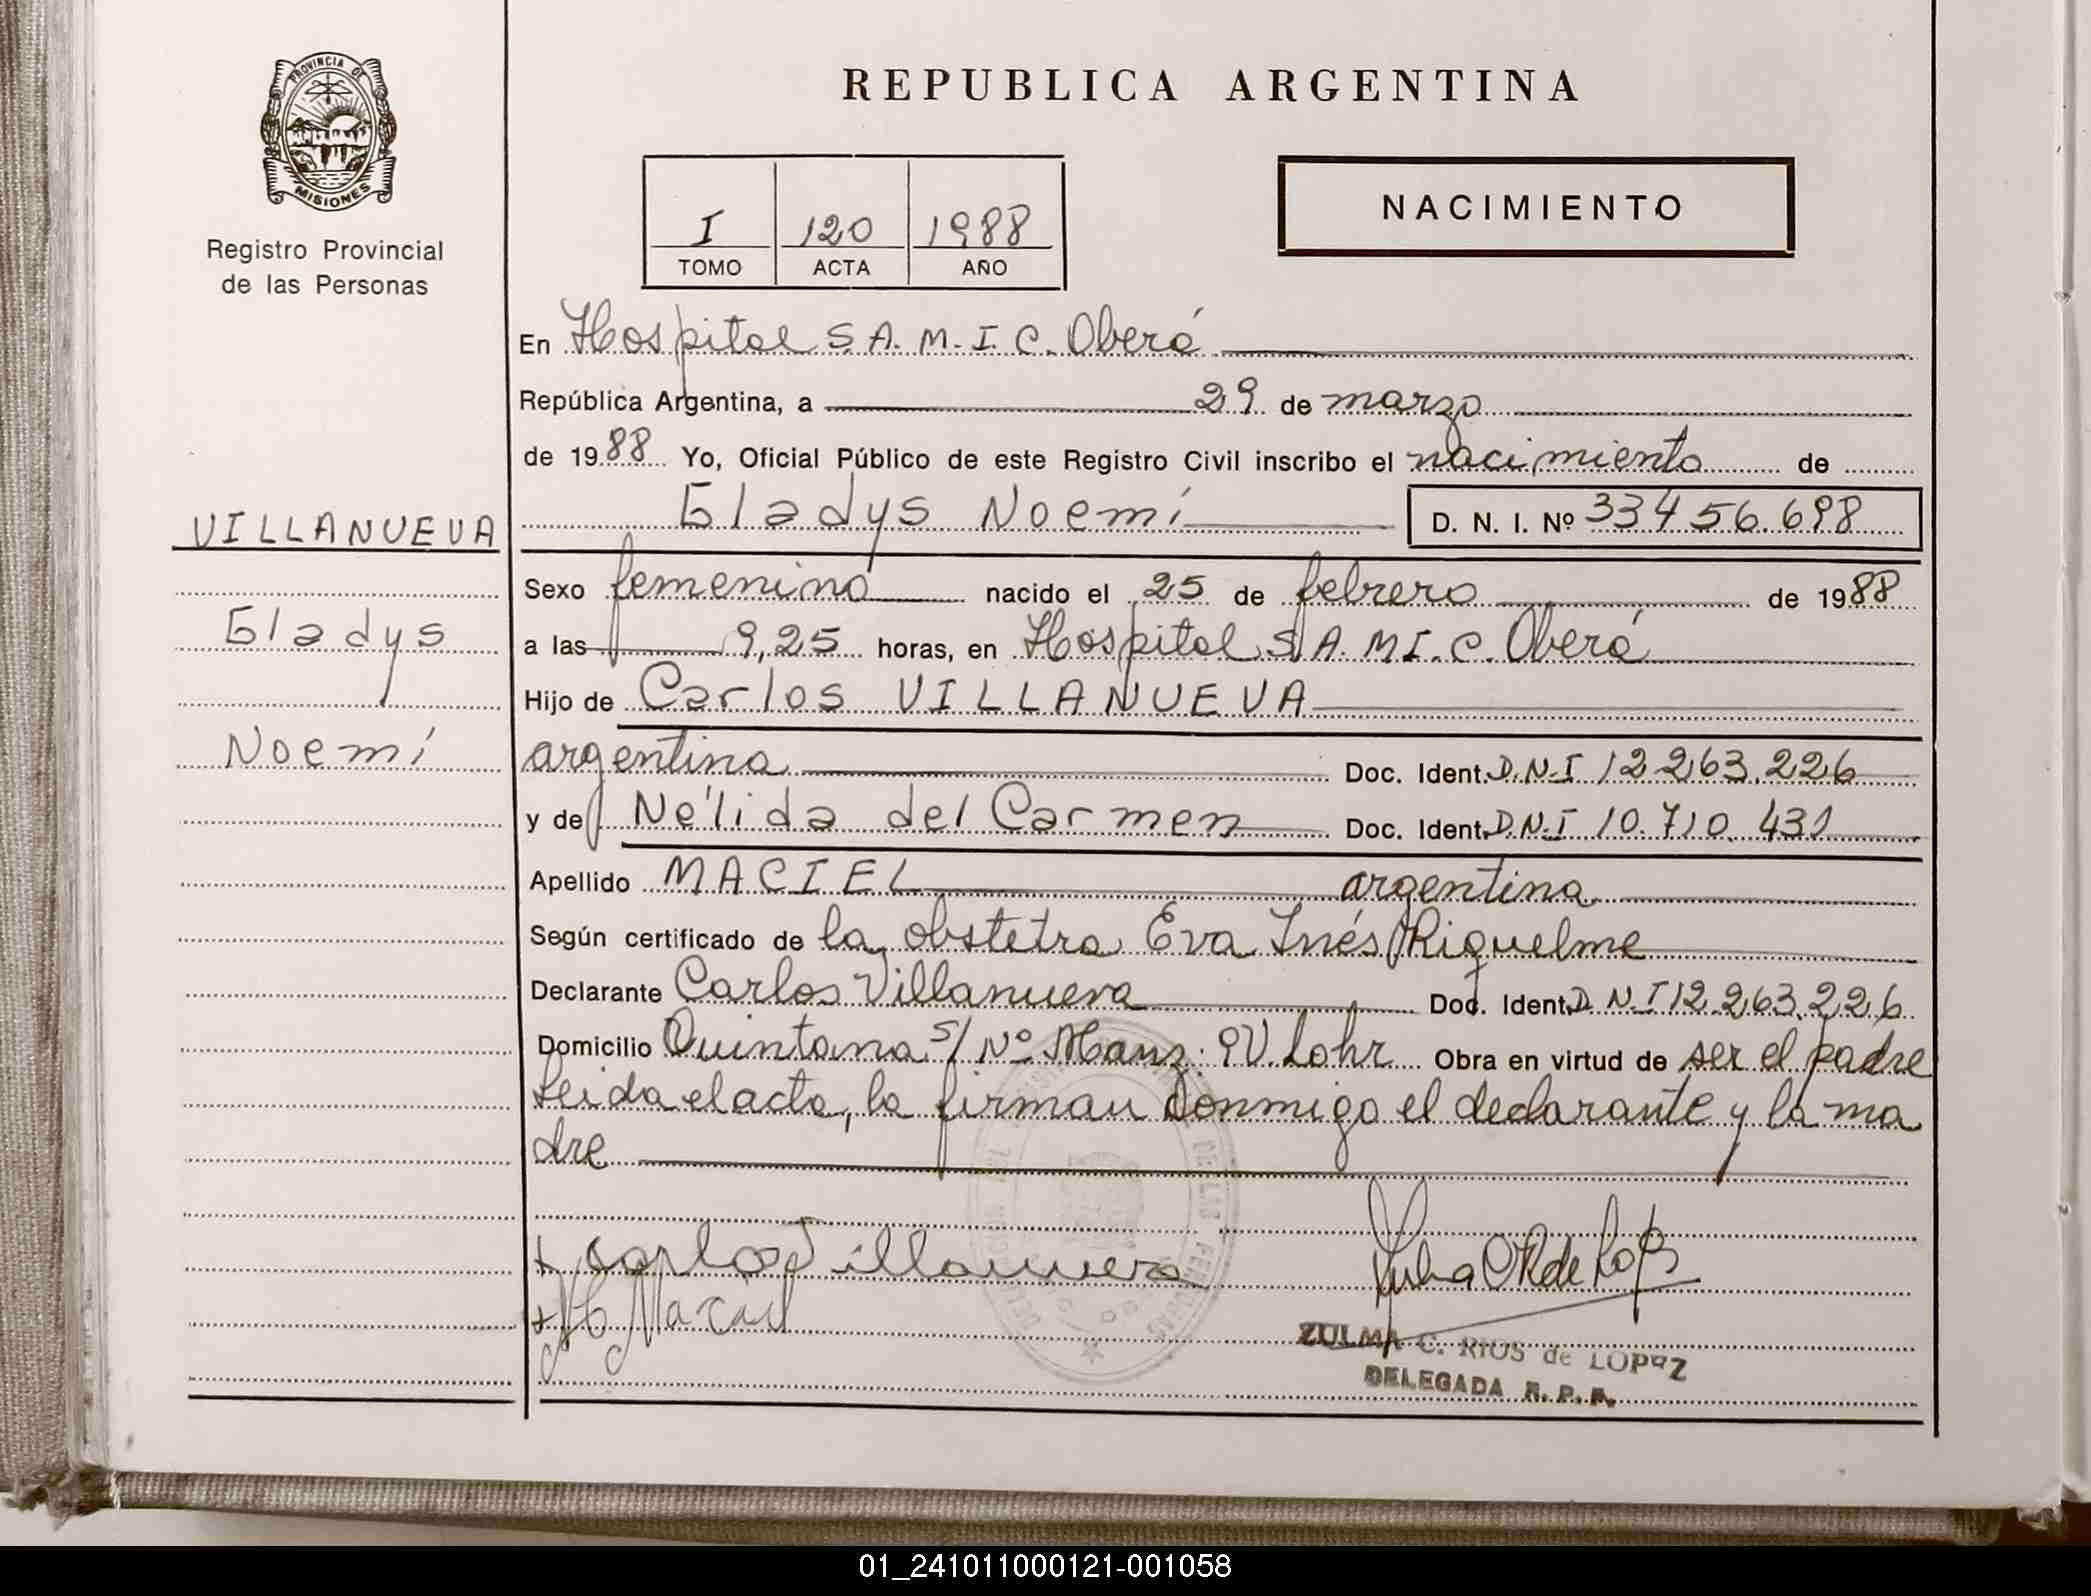 PROVINCIA DE
MISIONES
Registro Provincial
de las Personas
REPUBLICA ARGENTINA
NACIMIENTO
I 120 1988
TOMO ACTA AÑO
En Hospital S.A.M.I.C. Oberá
República Argentina, a 29 de marzo
de 1988 Yo, Oficial Público de este Registro Civil inscribo el nacimiento de
Gladys Noemí D. N. I. Nº 33456.698
VILLANUEVA
Gladys
Noemí
Sexo femenino nacido el 25 de febrero de 1988
a las 9,25 horas, en Hospital S.A.M.I.C. Oberá
Hijo de Carlos VILLANUEVA
argentina Doc. Ident. D.N.I 12.263.226
y de Nélida del Carmen Doc. Ident. D.N.I 10.710.431
Apellido MACIEL argentina
Según certificado de la obstetra Eva Inés Riquelme
Declarante Carlos Villanueva Doc. Ident. D.N.I 12.263.226
Domicilio Quintana s/Nº Manz. 9 V. Lohr Obra en virtud de ser el padre
Leida el acta, la firman conmigo el declarante y la ma
dre
+ Carlos Villanueva
+ Maciel
ZULMA C. RIOS de LOPEZ
DELEGADA R. P. P.
01_241011000121-001058